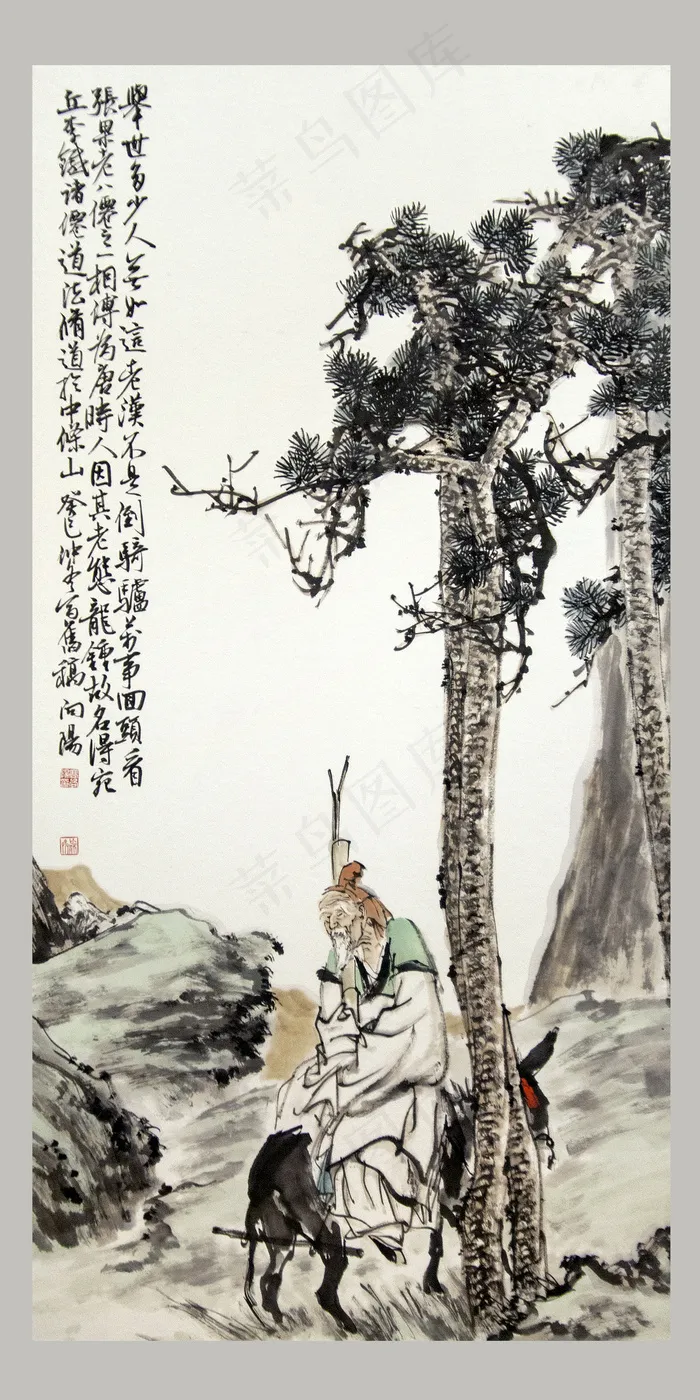 舉世多少人無如這老漢不是倒騎驢萬事回頭看
張果老八僊之一相傳為唐時人因其老態龍鍾故名得宛
丘李鐵諸僊道法脩道於中條山癸巳冲 寫舊稿向陽
菜鸟图库
菜鸟图库
菜鸟图库